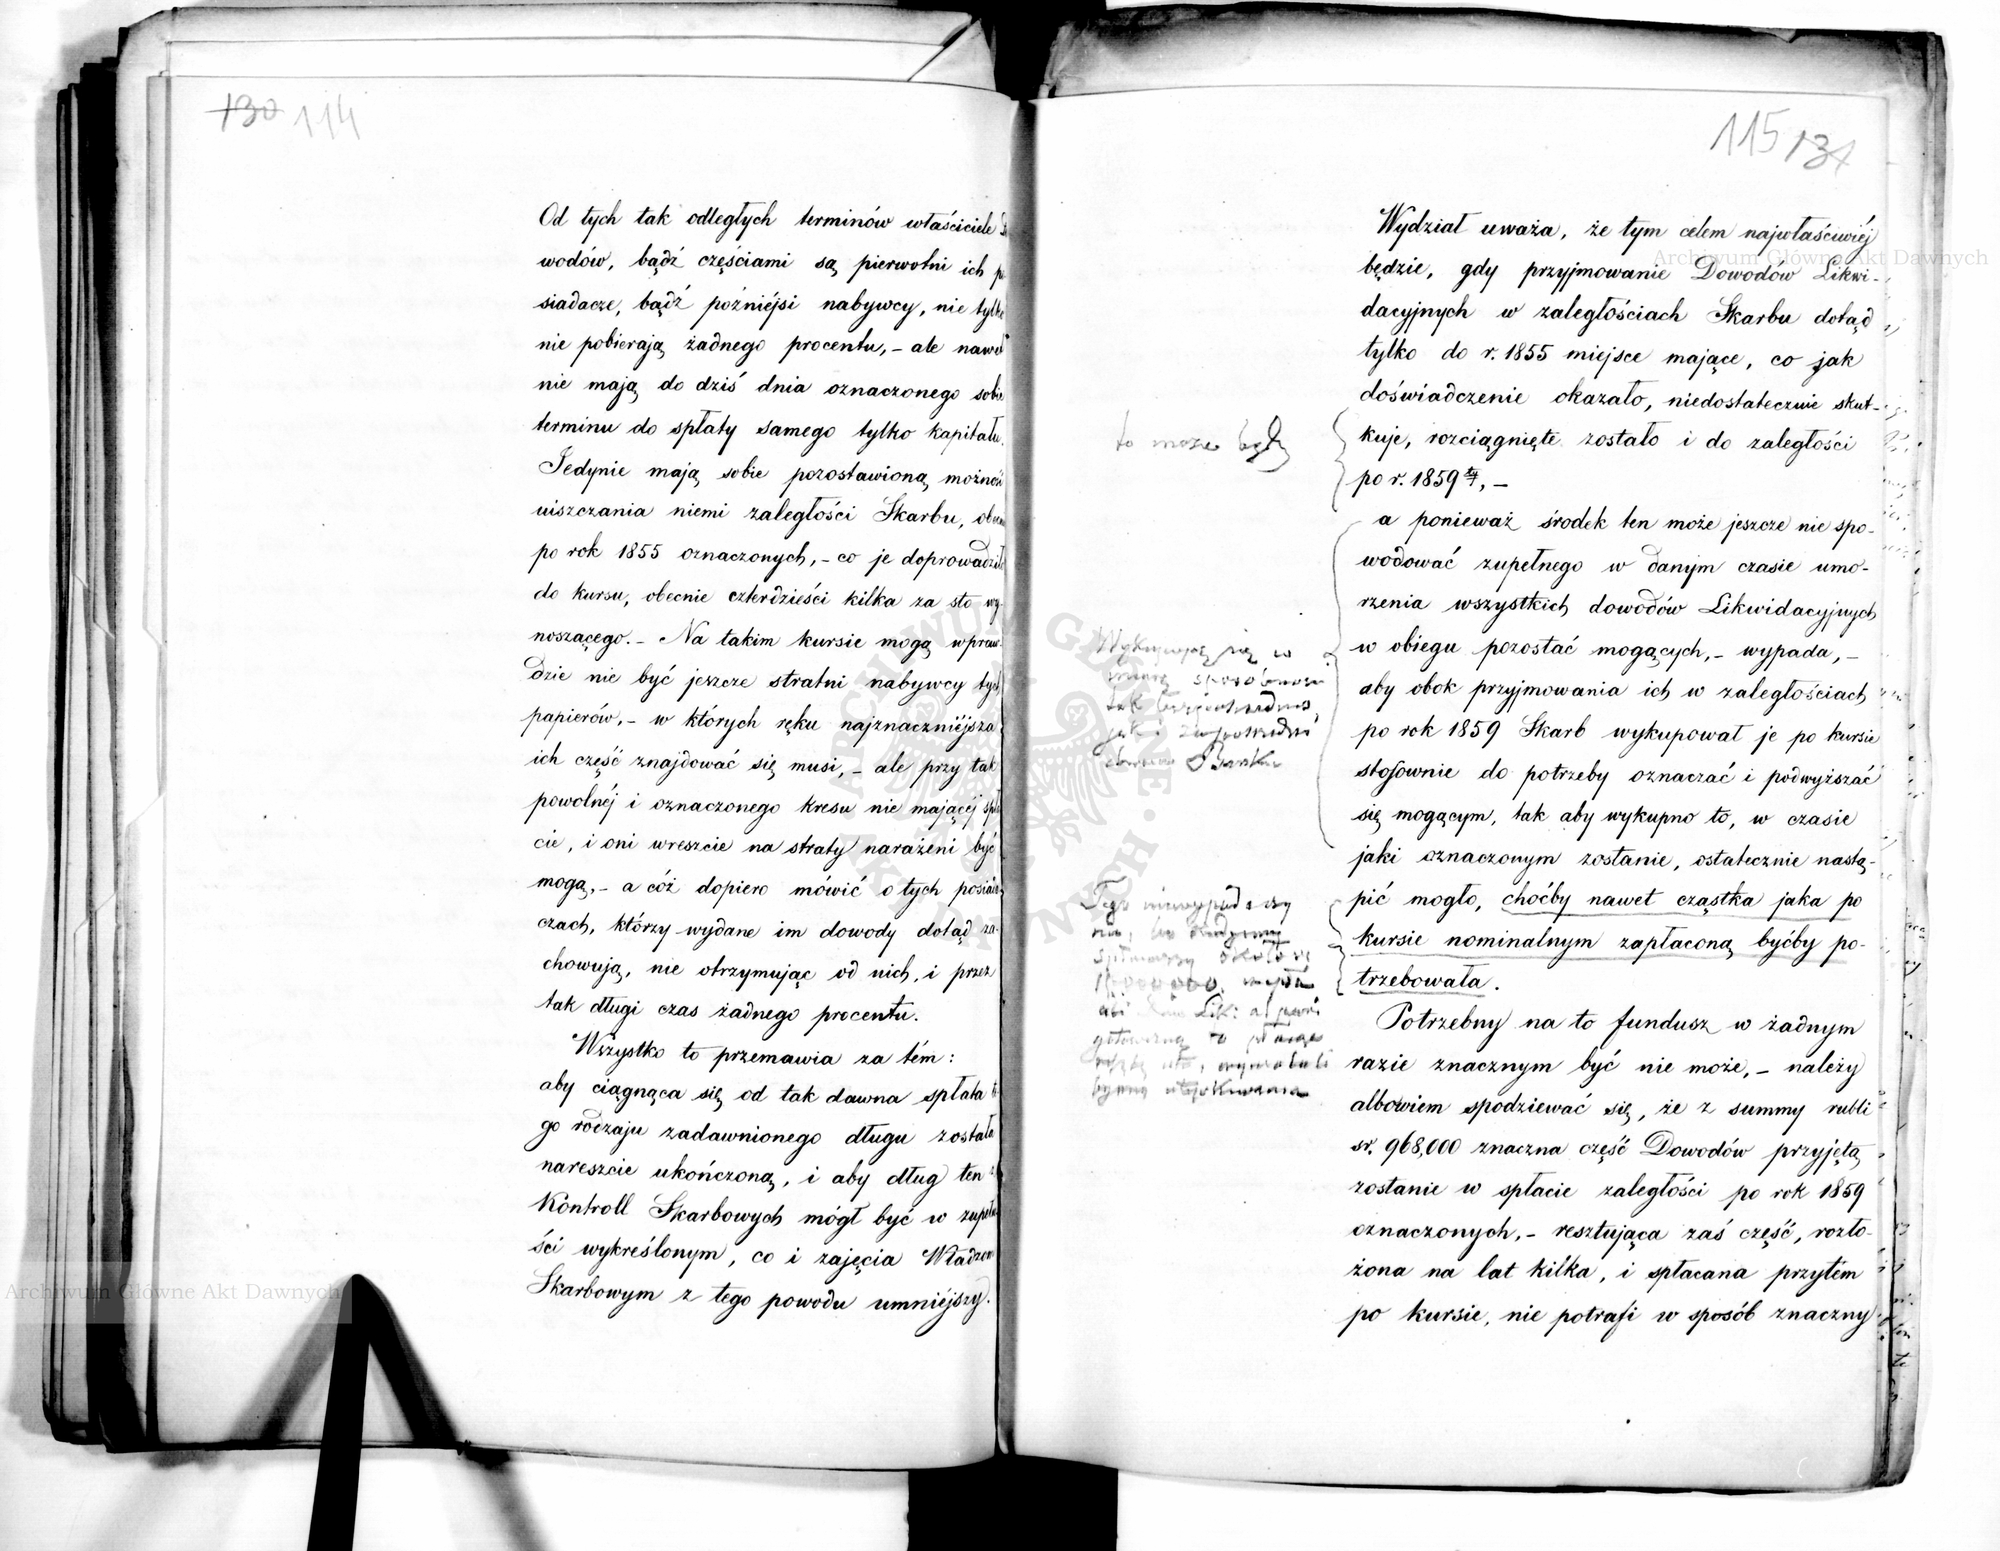 130 114
Od tych tak odległych terminów właściciele
wodów, bądź częściami są pierwotni ich
siadacze, bądź poźniéjsi nabywcy, nie tylko
nie pobierają żadnego procentu, – ale nawet
nie mają do dziś dnia oznaczonego sobie
terminu do spłaty samego tylko kapitału.
Jedynie mają sobie pozostawioną możność
uiszczania niemi zaległości Skarbu,
po rok 1855 oznaczonych, – co je doprowadziło
do kursu, obecnie czterdzieści kilka za sto wy-
noszącego. – Na takim kursie mogą wpraw-
dzie nie być jeszcze stratni nabywcy tych
papierów, – w których ręku najznaczniéjsza
ich część znajdować się musi, – ale przy tak
powolnéj i oznaczonego kresu nie mającéj spła
cie, i oni wreszcie na straty narażeni być
mogą, – a cóż dopiero mówić o tych posiada
czach, którzy wydane im dowody dotąd za-
chowują, nie otrzymując od nich, i przez
tak długi czas żadnego procentu.
Wszystko to przemawia za tém:
aby ciągnąca się od tak dawna spłata te
go rodzaju zadawnionego długu została
nareszcie ukończoną, i aby dług ten z
Kontroll Skarbowych mógł być w zupełno
ści wykreślonym, co i zajęcia Władzom
Skarbowym z tego powodu umniéjszy.
115 131
Wydział uważa, że tym celem najwłaściwiéj
będzie, gdy przyjmowanie Dowodów Likwi-
dacyjnych w zaległościach Skarbu dotąd
tylko do r. 1855 miejsce mające, co jak
doświadczenie okazało, niedostatecznie skut-
kuje, rozciągnięte zostało i do zaległości
po r. 1859 ty, –
a ponieważ środek ten może jeszcze nie spo-
wodować zupełnego w danym czasie umo-
rzenia wszystkich dowodów Likwidacyjnych
w obiegu pozostać mogących, – wypada, –
aby obok przyjmowania ich w zaległościach
po rok 1859 Skarb wykupował je po kursie
stosownie do potrzeby oznaczać i podwyższać
się mogącym, tak aby wykupno to, w czasie
jaki oznaczonym zostanie, ostatecznie nastą-
pić mogło, choćby nawet cząstka jaka po
kursie nominalnym zapłaconą byćby po-
trzebowała.
Potrzebny na to fundusz w żadnym
razie znacznym być nie może, – należy
albowiem spodziewać się, że z summy rubli
sr. 968,000 znaczna część Dowodów przyjętą
zostanie w spłacie zaległości po rok 1859
oznaczonych, – resztująca zaś część, rozło-
żona na lat kilka, i spłacana przytém
po kursie, nie potrafi w sposób znaczny
to może być
Archiwum Główne Akt Dawnych
Archiwum Główne Akt Dawnych
ARCHIWUM GŁÓWNE AKT DAWNYCH